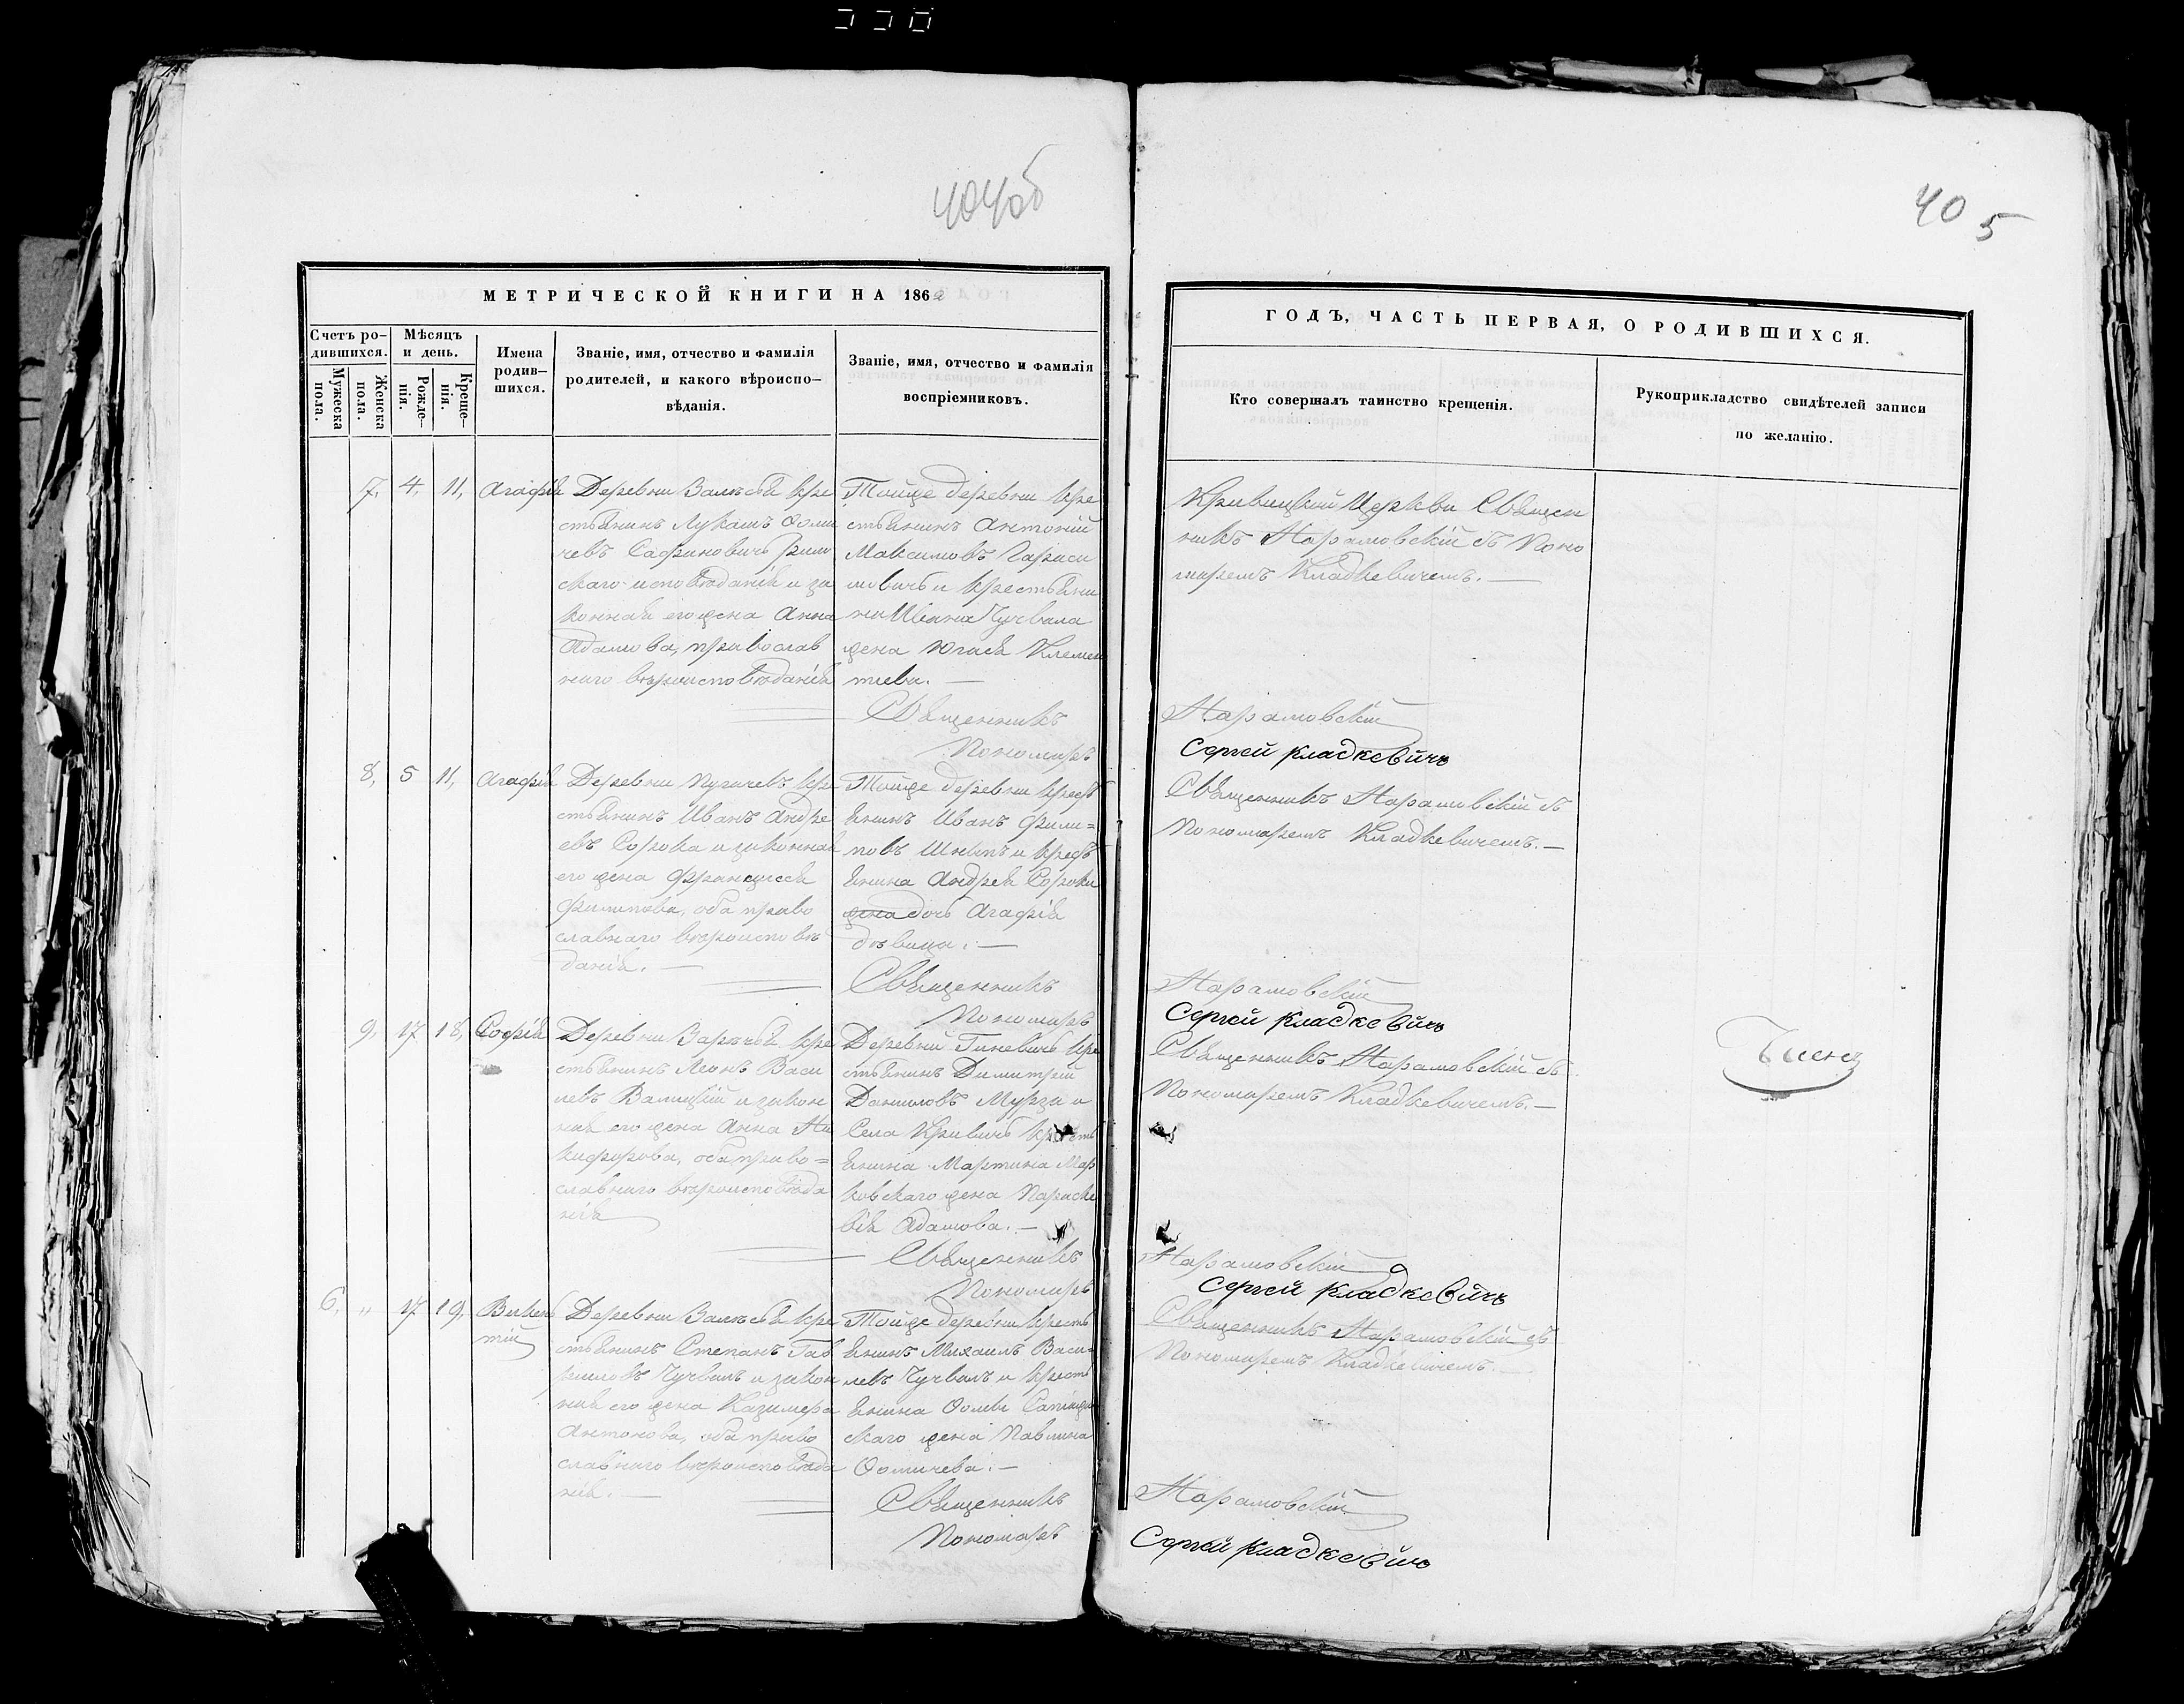 404об
40 5
МЕТРИЧЕСКОЙ КНИГИ НА 186
ГОДЪ, ЧАСТЬ ПЕРВАЯ, О РОДИВШИХСЯ.
Счетъ ро-
дившихся.
Мужеска
пола.
Женска
пола.
Мѣсяцъ
и день.
Рожде-
нія.
Креще-
нія.
Имена
родив-
шихся.
Званіе, имя, отчество и фамилія
родителей, и какого вѣроиспо-
вѣданія.
Званіе, имя, отчество и фамилія
воспріемниковъ.
Кто совершалъ таинство крещенія.
Рукоприкладство свидѣтелей записи
по желанію.
7, 4, 11, Агафія
Деревни Залѣсья кре
стьянинъ Лукашъ Ѳоми
чевъ Сафиновичь рим
скаго исповѣданія и за
конная его жена Анна
Адамова, православ
наго вѣроисповѣданія
Тойже деревни кре
стьянинъ Антоній
Максимовъ Гараси
мовичь и крестьяни
на Ивана Чучвала
жена Югася Клемен
тьева. —
Священникъ
Пономарь
Кривицкой Церкви Священ
никъ Нарамовскій съ Поно
маремъ Кладкевичемъ. —
Нарамовскій
Сергей Кладкевичъ
8, 5 11, Агафія
Деревни Пугачевъ кре
стьянинъ Иванъ Андре
евъ Сорока и законная
его жена Францися
Филипова, оба право
славнаго вѣроисповѣ
данія. —
Тойже деревни крест
янинъ Иванъ Фили=
повъ и крест
янина Андрея Сороки
жена дочь Агафія
дѣвица. —
Священникъ
Пономарь
Священникъ Нарамовскій съ
Пономаремъ Кладкевичемъ. —
Нарамовскій
Сергей Кладкевичъ
9, 17 18, Софія
Деревни Зарѣчья кре
стьянинъ Леонъ Васи
левъ Валицкій и закон
ная его жена Анна Ни
кифорова, оба право=
славнаго вѣроисповѣда
нія
Деревни Гиневичь кре
стьянинъ Димитрій
Даниловъ Мурза и
Села Кривичь кресть
янина Мартина Мар
ковскаго жена Параске
вія Адамова. —
Священникъ
Пономарь
Священникъ Нарамовскій съ
Пономаремъ Кладкевичемъ. —
Нарамовскій
Сергей Кладкевичъ
6, " 17 19, Викен
тій
Деревни Залѣсья кре
стьянинъ Степанъ Гав
риловъ Чучвалъ и закон
ная его жена Казимера
Антонова, оба право
славнаго вѣроисповѣда
нія. —
Тойже деревни кресть
янинъ Михаилъ Васи=
левъ Чучвалъ и кресть
янина Ѳомы
скаго жена Павлина
Ѳомичева. —
Священникъ
Пономарь
Священникъ Нарамовскій съ
Пономаремъ Кладкевичемъ. —
Нарамовскій
Сергей Кладкевичъ